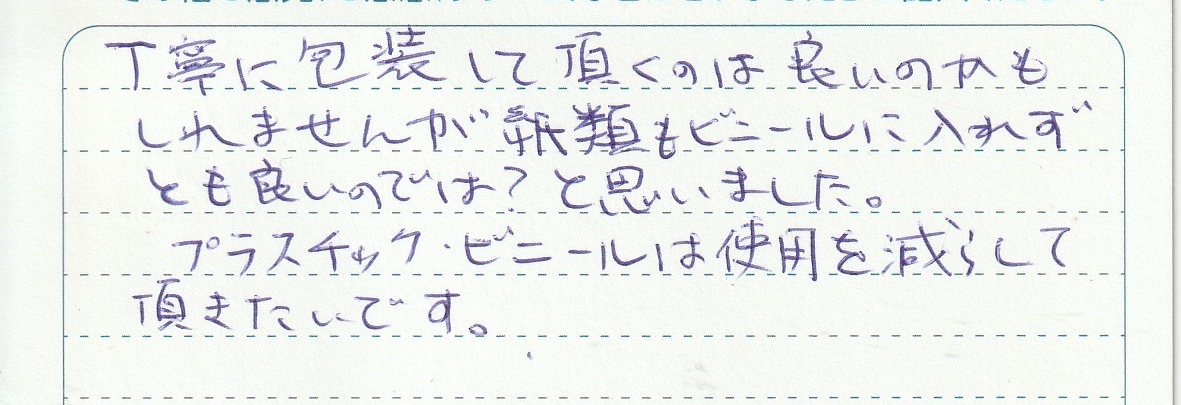 丁寧に包装して頂くのは良いのかも
しれませんが紙類もビニールに入れず
とも良いのでは?と思いました。
プラスチック・ビニールは使用を減らして
頂きたいです。